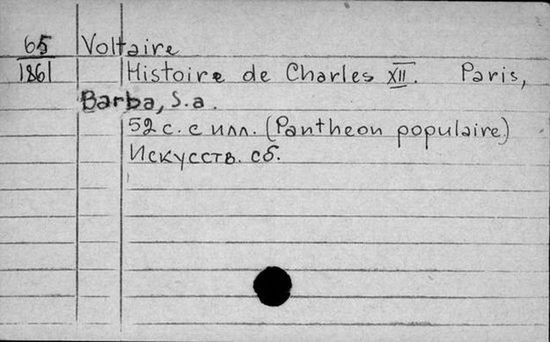 65 Voltaire
1861 Histoire de Charles XII. Paris,
Barba, S.a.
52 с. с илл. (Pantheon populaire)
Искусств. сб.